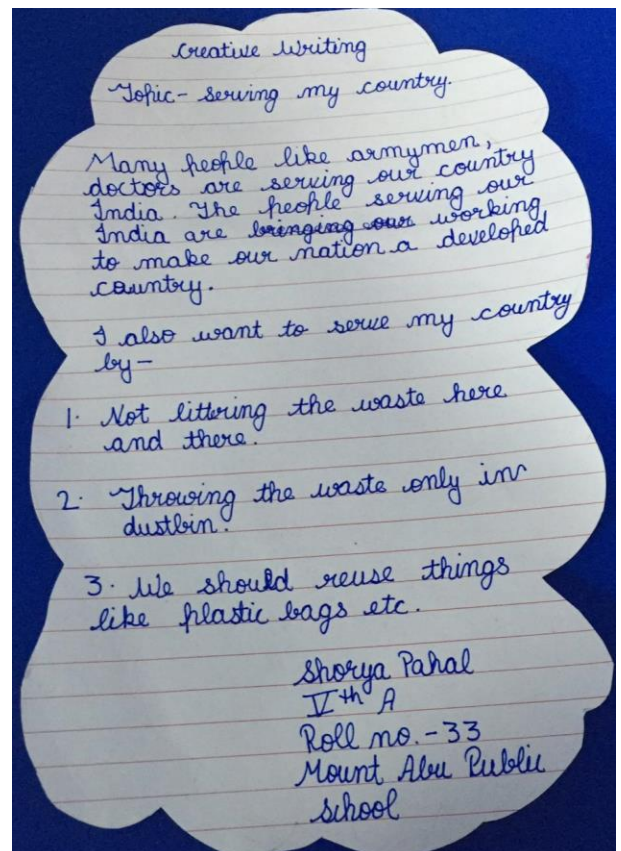 Creative Writing
Topic- serving my country.
Many people like armymen,
doctors are serving our country
India. The people serving our
India are bringing our working
to make our nation a developed
country.
I also want to serve my country
by-
1. Not littering the waste here
and there.
2. Throwing the waste only in
dustbin.
3. We should reuse things
like plastic bags etc.
Shorya Pahal
Vth A
Roll no.-33
Mount Abu Public
School